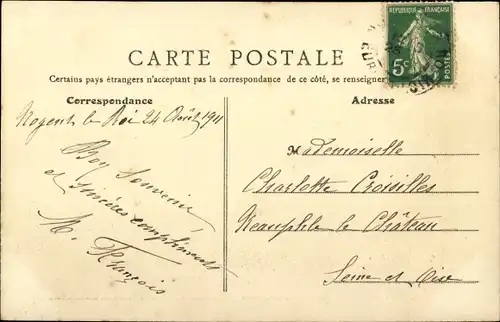 RÉPUBLIQUE FRANÇAISE
5c
POSTES
CARTE POSTALE
Certains pays étrangers n'acceptant pas la correspondance de ce côté, se renseigner
Correspondance
Adresse
Nogent le Roi 24 Août 1911
Bon Souvenir
et sincères compliments
M. François
Mademoiselle
Charlotte Croisilles
Neauphle le Château
Seine et Oise